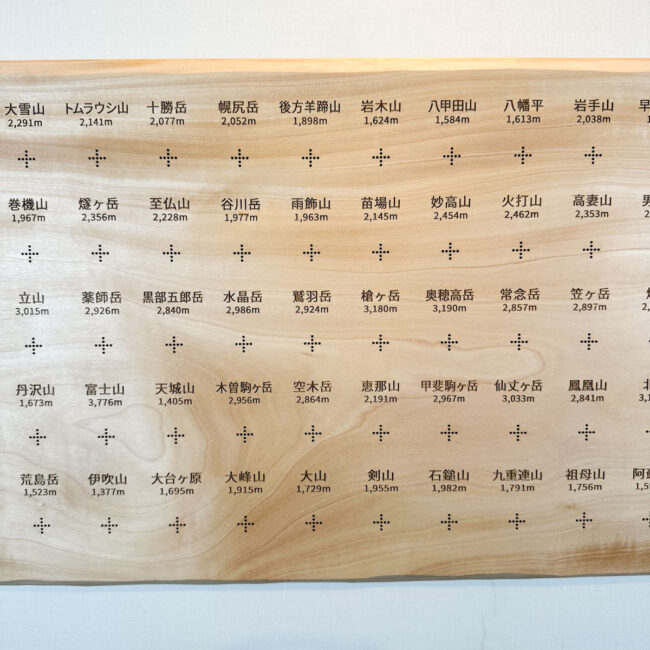 大雪山 トムラウシ山 十勝岳 幌尻岳 後方羊蹄山 岩木山 八甲田山 八幡平 岩手山 早
2,291m 2,141m 2,077m 2,052m 1,898m 1,624m 1,584m 1,613m 2,038m
巻機山 燧ヶ岳 至仏山 谷川岳 雨飾山 苗場山 妙高山 火打山 高妻山 男
1,967m 2,356m 2,228m 1,977m 1,963m 2,145m 2,454m 2,462m 2,353m
立山 薬師岳 黒部五郎岳 水晶岳 鷲羽岳 槍ヶ岳 奥穂高岳 常念岳 笠ヶ岳
3,015m 2,926m 2,840m 2,986m 2,924m 3,180m 3,190m 2,857m 2,897m
丹沢山 富士山 天城山 木曽駒ヶ岳 空木岳 恵那山 甲斐駒ヶ岳 仙丈ヶ岳 鳳凰山 北
1,673m 3,776m 1,405m 2,956m 2,864m 2,191m 2,967m 3,033m 2,841m
荒島岳 伊吹山 大台ヶ原 大峰山 大山 剣山 石鎚山 九重連山 祖母山 阿
1,523m 1,377m 1,695m 1,915m 1,729m 1,955m 1,982m 1,791m 1,756m